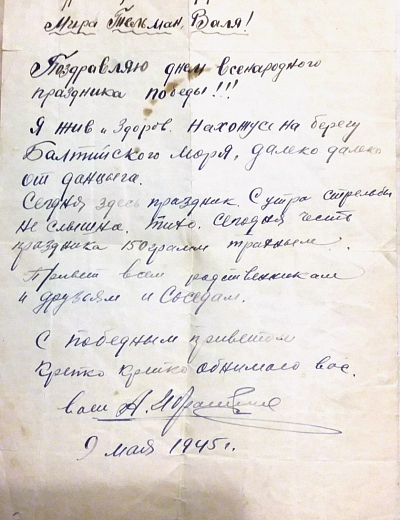 Мира Тельман, Валя!
Поздравляю днем всенародного
праздника победы!!!
Я жив и здоров. Нахожусь на берегу
Балтийского моря, далеко далеко
от данцыга.
Сегодня здесь праздник. С утра стрельбы
не слышна. Тихо. Сегодня честь
праздника 150 грамм
Привет всем родственникам
и друзьям и соседам.
С победным приветом
Крепко крепко обнимаю вас.
ваш
9 мая 1945 г.